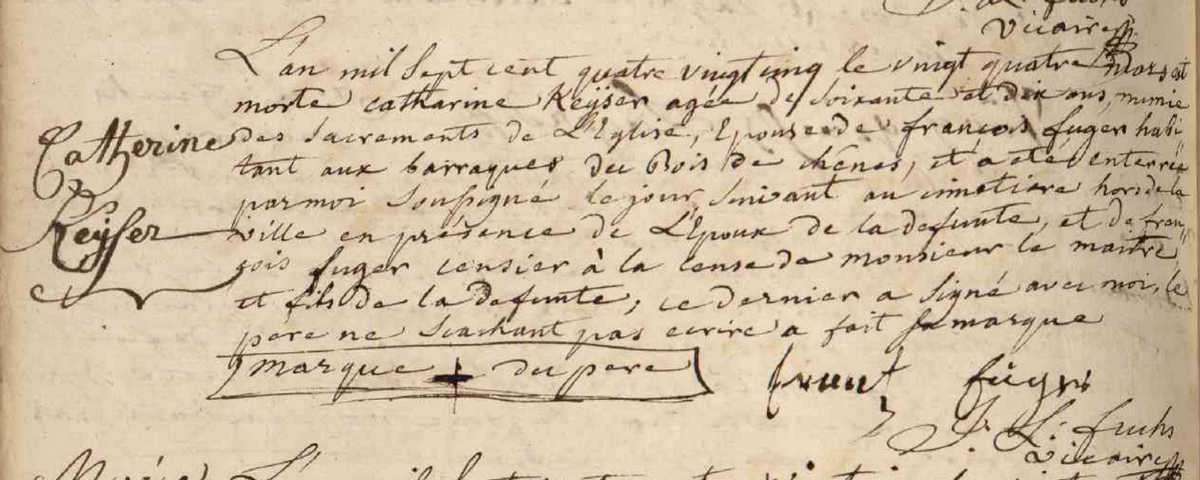 J. L. fuchs
Vicaire
L'an mil Sept cent quatre vingt cinq le vingt quatre mars est
morte catharine Keyser agée de soixante et dix ans, munie
Catherine
des sacrements de L'Eglise, Epouse de françois fuger habi
tant aux barraques du Bois de chênes, et a eté enterrée
par moi soussigné le jour suivant au cimetiere hors de la
Keysser
ville en présence de L'Epoux de la defunte, et de fran
çois fuger censier à la cense de monsieur le maitre
et fils de la defunte, ce dernier a signé avec moi, le
pere ne scachant pas ecrire a fait sa marque
marque + du pere
frantz füger
J. L. fuchs
vicaire
Marie L'